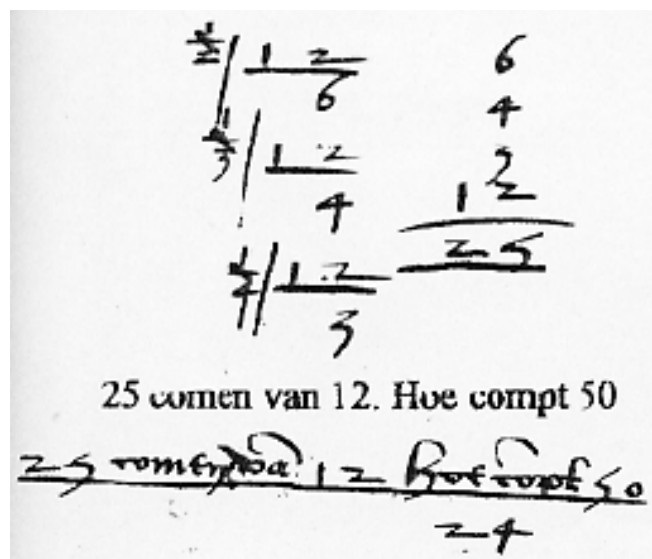 1/2 | 12
6
1/3 | 12
4
1/4 | 12
3
6
4
3
12
25
25 comen van 12. Hoe compt 50
25 comen vā 12 hoe cōpt 50
24